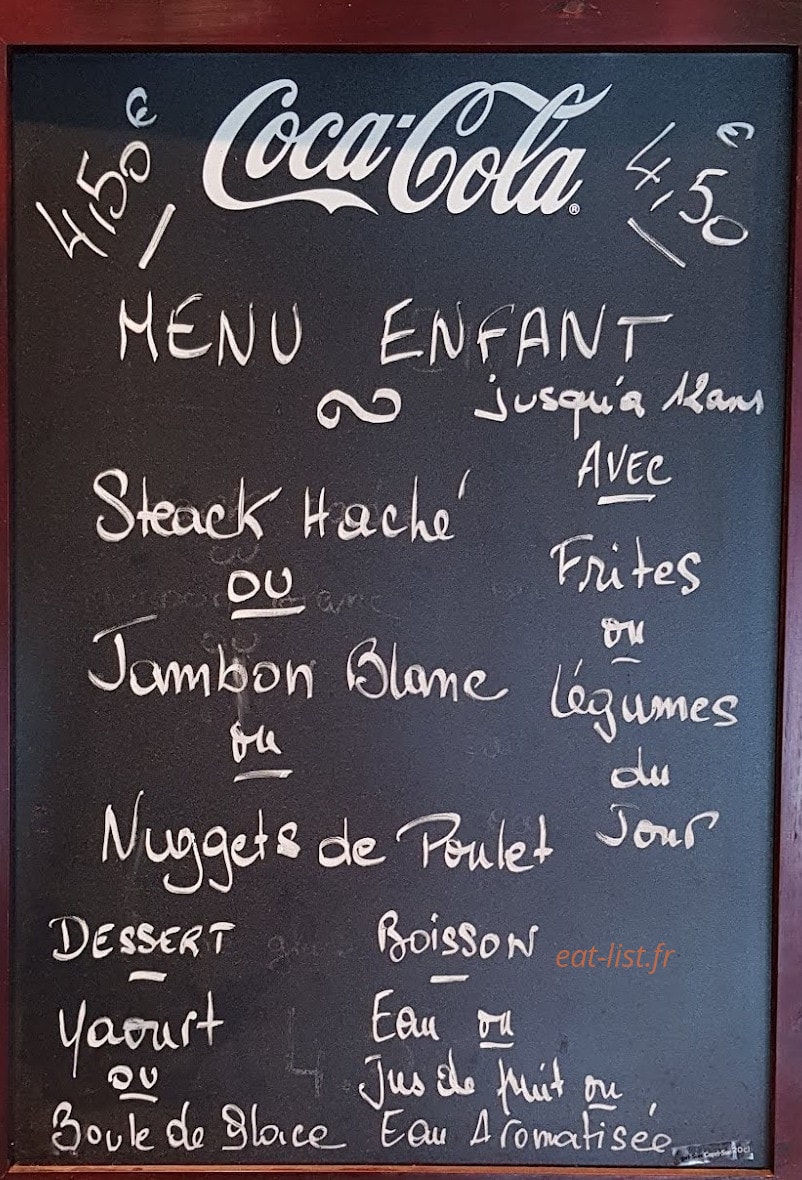 4,50€
Coca-Cola®
4,50€
MENU ENFANT
jusqu'à 12 ans
Steack Haché
OU
Jambon Blanc
ou
Nuggets de Poulet
AVEC
Frites
ou
Légumes
du
Jour
DESSERT
Yaourt
OU
Boule de Glace
BOISSON
Eau ou
Jus de fruit ou
Eau Aromatisée
eat-list.fr